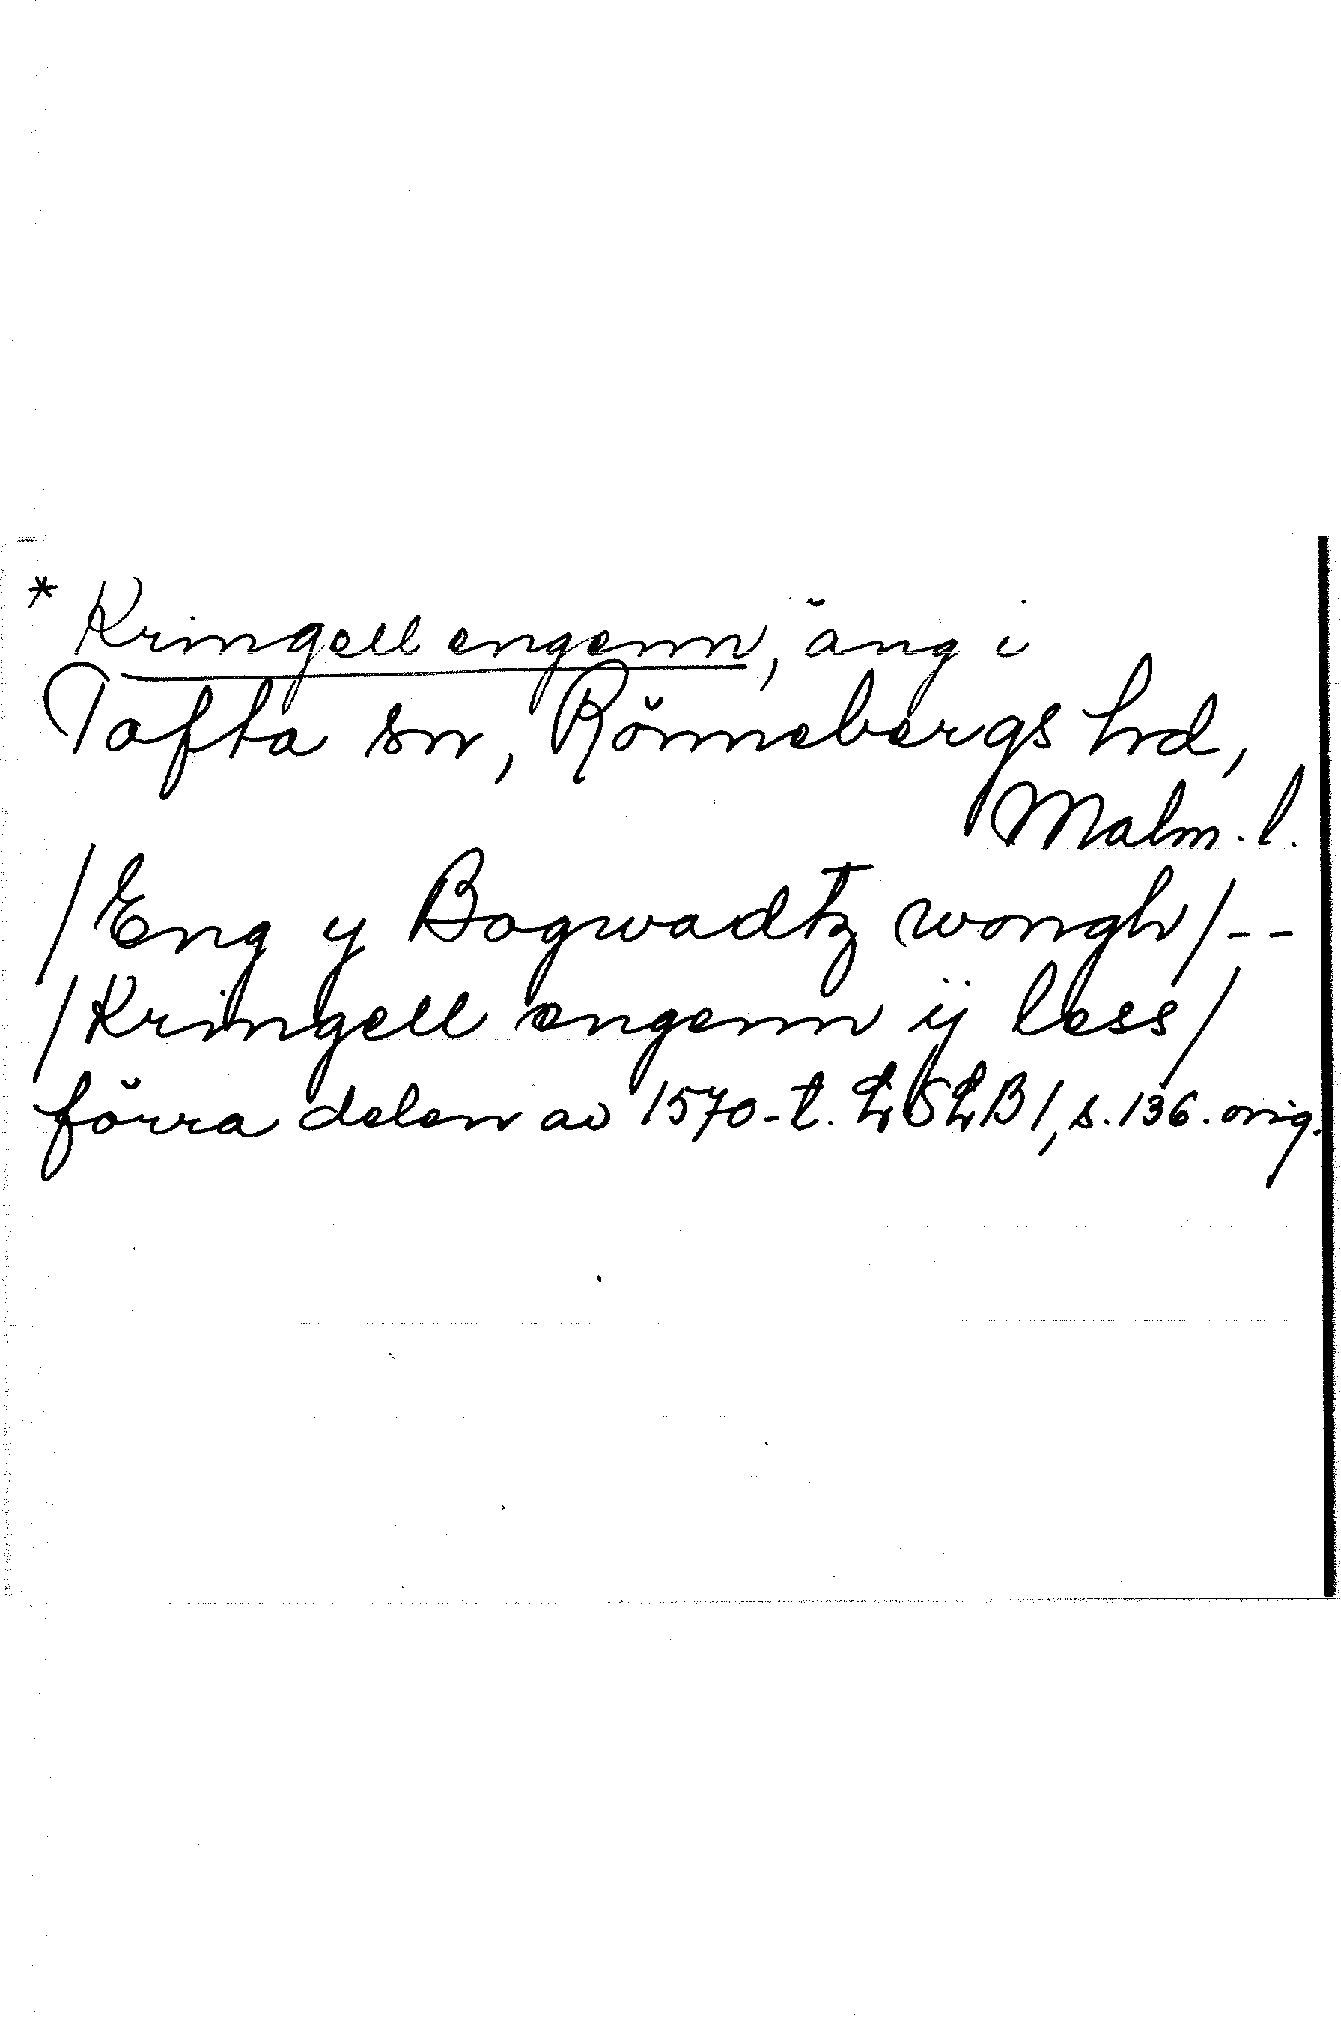 * Kringell engenn, äng i
Tofta sn, Rönnebergs hrd,
Malm. l.
/Eng y Bogwadtz wongh/--
/Kringell engenn ij less/
förra delen av 1570-t. LSLB 1, s. 136. orig.